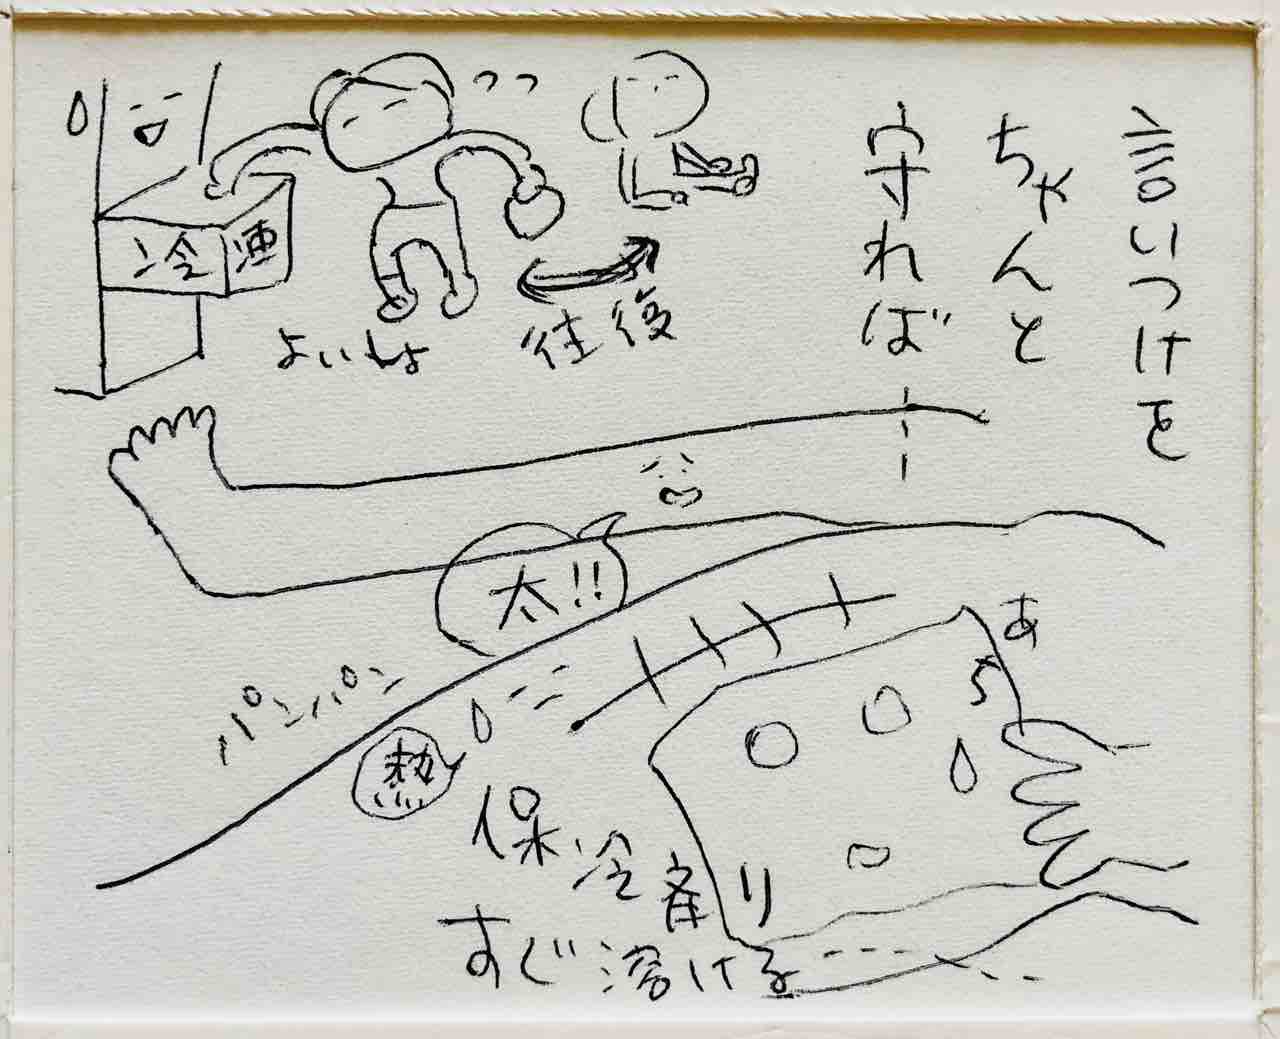 言いつけを
ちゃんと
守れば…
冷凍
よいしょ
往復
太!!
パンパン
熱
あち
保冷剤
すぐ溶ける